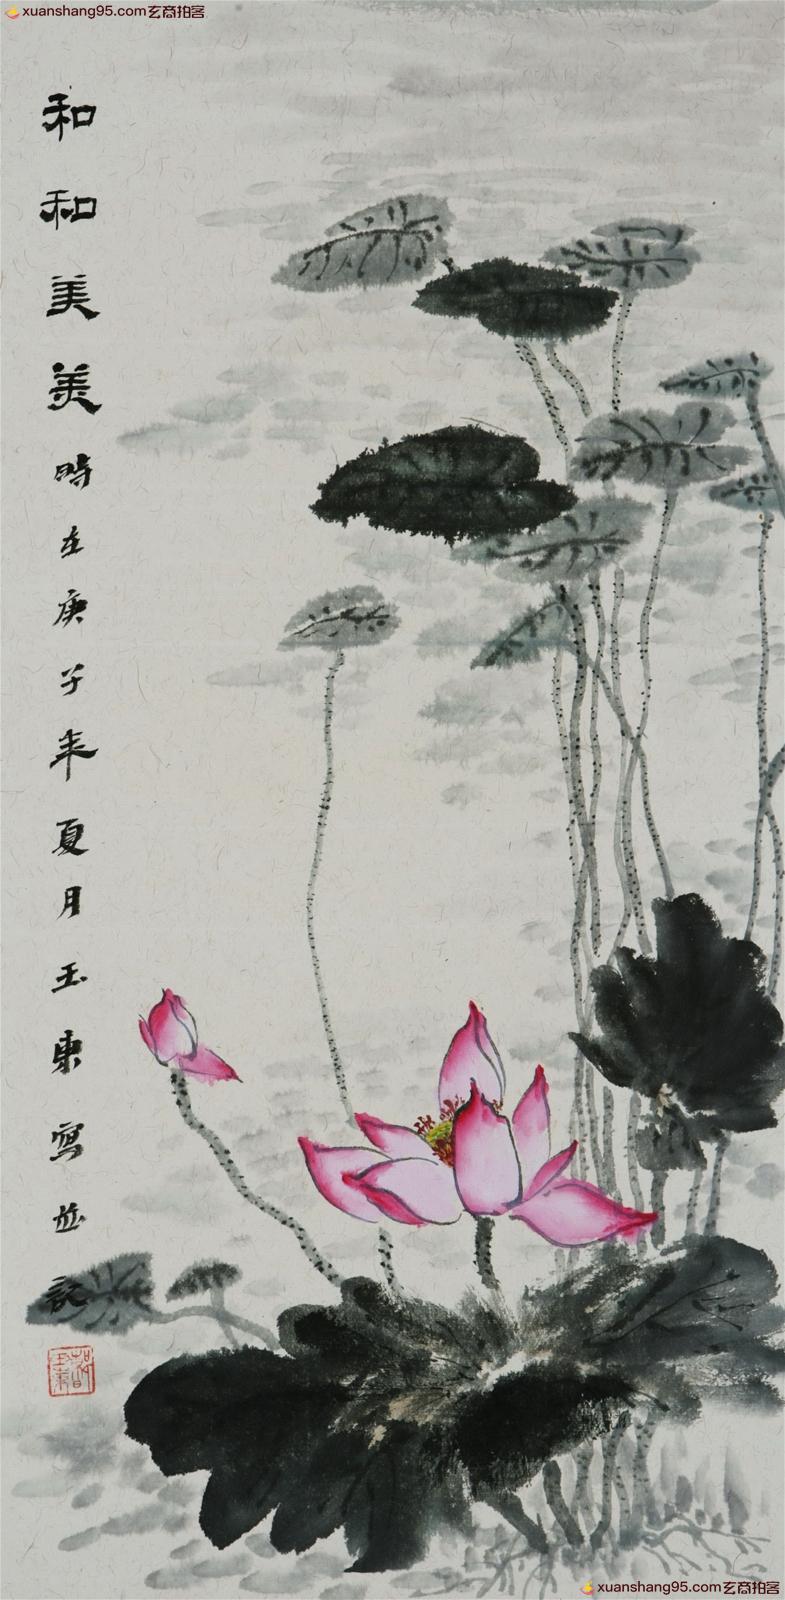 xuanshang95.com玄商拍客
和和美美時在庚子年夏月玉東寫並記
xuanshang95.com玄商拍客